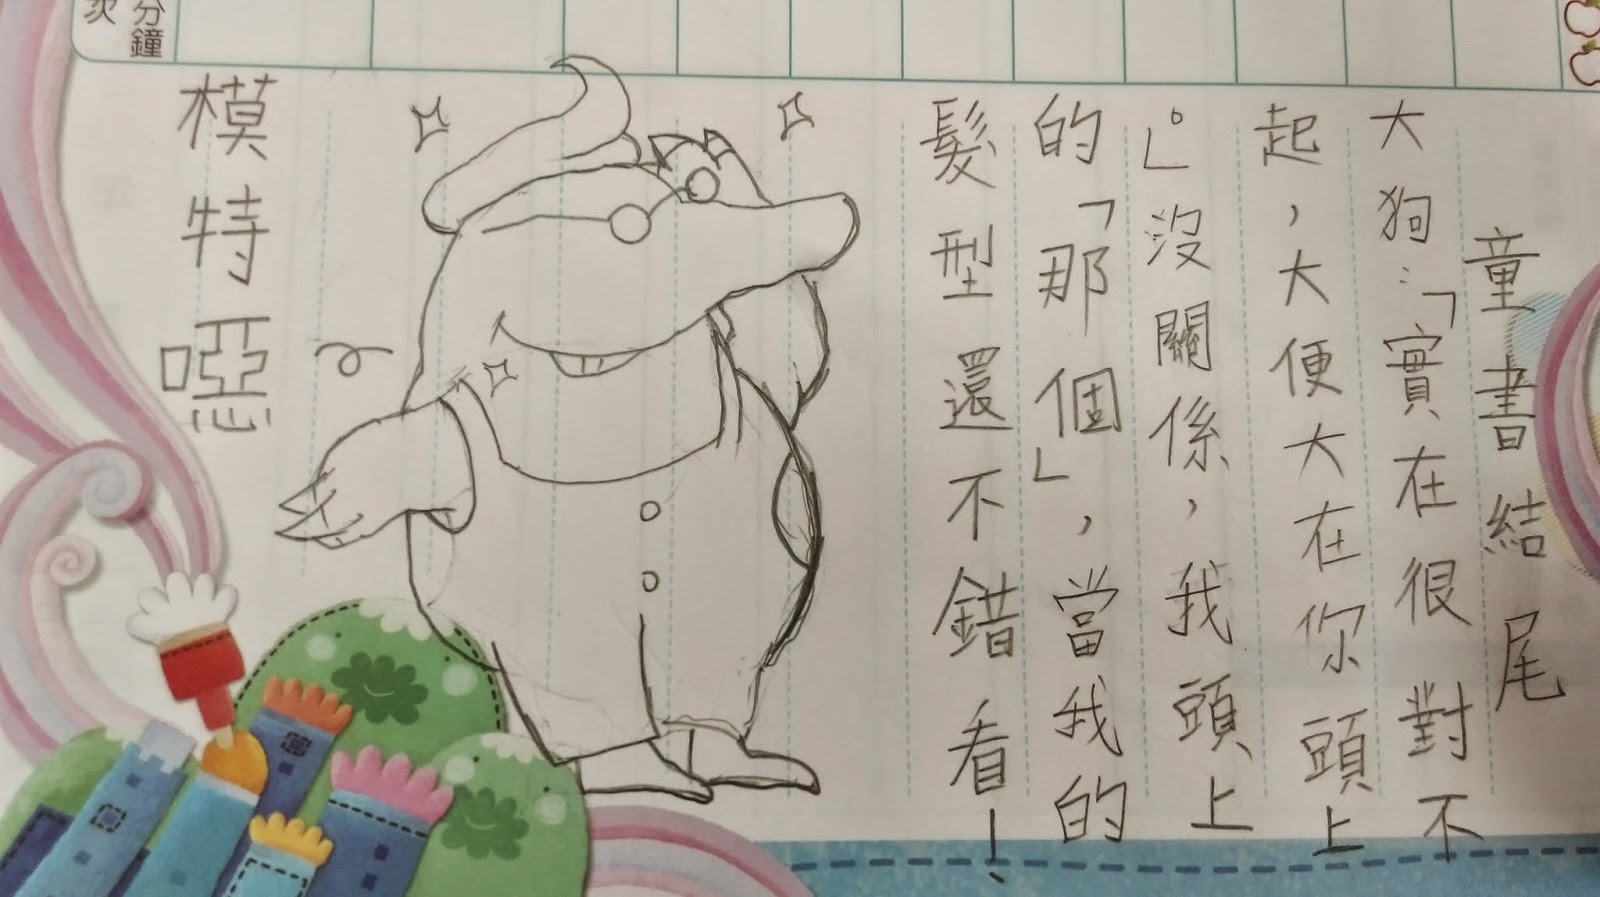 童書結尾
大狗:「實在很對不
起，大便大在你頭上
。」沒關係，我頭上
的「那個」，當我的
髮型還不錯看!
模特啞
分鐘
次